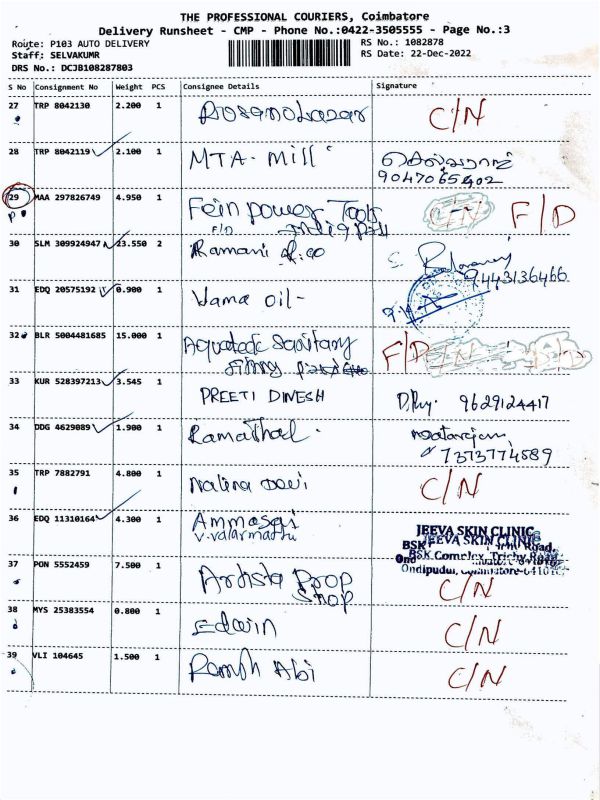 THE PROFESSIONAL COURIERS, Coimbatore
Delivery Runsheet - CMP - Phone No.:0422-3505555 - Page No.:3
Route: P103 AUTO DELIVERY
Staff: SELVAKUMR
DRS No.: DCJB108287803
RS No.: 1082878
RS Date: 22-Dec-2022
S No Consignment No Weight PCS Consignee Details Signature
27 TRP 8042130 2.200 1 C/N
28 TRP 8042119 2.100 1 MTA - Mill
9047065402
29 MAA 297826749 4.950 1 Fein power Tools F/D
P F/D
30 SLM 309924947 23.550 2 Ramani
9443136466
31 EDQ 20575192 0.900 1 Vama oil -
32 BLR 5004481685 15.000 1 Sanitary F/D
33 KUR 528397213 3.545 1 PREETI DINESH 9629124417
34 DDG 4629089 1.900 1 Ramathal
7373774589
35 TRP 7882791 4.800 1 Nalina Devi C/N
36 EDQ 11310164 4.300 1 Ammasai
V. Valarmathi
JEEVA SKIN CLINIC
BSK Complex, Trichy Road,
Ondipudur, Coimbatore-641016
37 PON 5552459 7.500 1 Artista Prop C/N
Shop
38 MYS 25383554 0.800 1 Edwin C/N
39 VLI 104645 1.500 1 Abi C/N